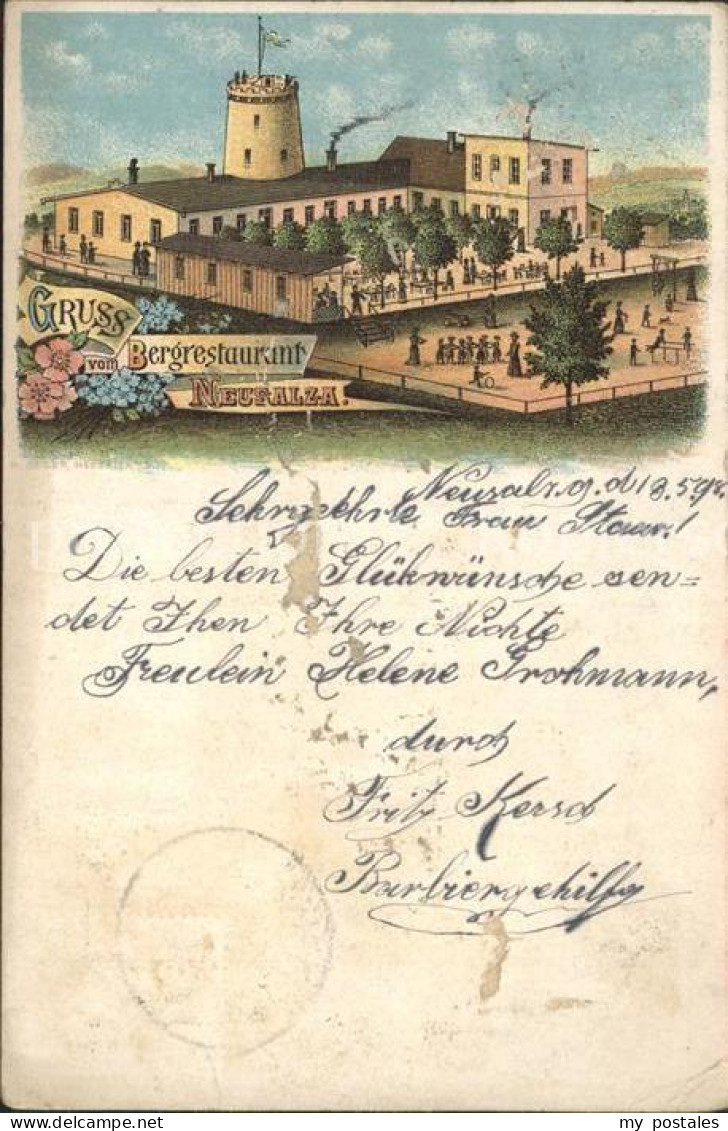 GRUSS
vom Bergrestaurant
NEUSALZA.
Neusalz. d 18.5.
Sehrgeehrte Frau
Die besten Glükwünsche sen=
det Ihen Ihre Nichte
Freulein Helene Grohmann,
durch
Fritz Kersch
Barbiergehilfe
my postales